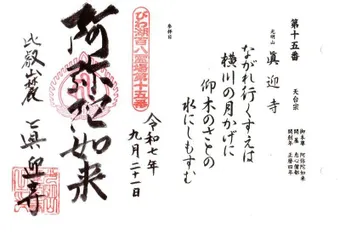 第十五番
天台宗
光明山 眞迎寺
御本尊 阿弥陀如来
開基 恵心僧都
開創年 正暦四年
ながれ行くすえは
横川の月かげに
仰木のさとの
水にしもすむ
参拝日
令和七年
九月二十一日
びわ湖百八霊場第十五番
阿弥陀如来
比叡山麓 真迎寺